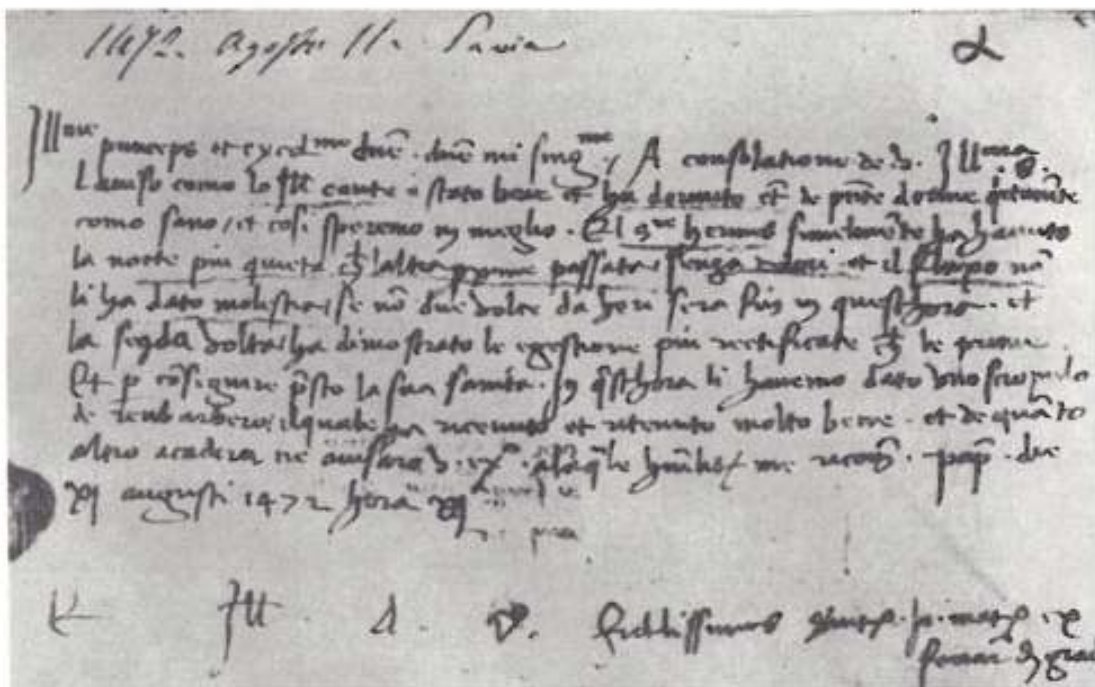 1472. Agosto 11. Pavia
Ill^me princeps et excel^me dñe. dñe mi sing^me / A consolatione de v. Ill^ma S.
l aviso como lo Ill conte è stato bene et ha dormito et de pñte dorme
como sano / et così speremo in meglio. El s^re hermes similemẽte ha havuto
la nocte più quieta ch laltra passata senza et il nõ
li ha dato molestia / se nõ due volte da heri sera fin in questhora. et
la segda volta ha dimostrato le egestione più rectificate ch le prime.
Et p cõseguire psto la sua sanita. In qsthora li havemo dato uno scropulo
de reubarbero / ilquale ha ricevuto et ritenuto molto bene. et de quãto
altro acaderà ne avisarò v. ex. me pap. die
xj augusti 1472 hora xj
Ill d. v. fidelissimus